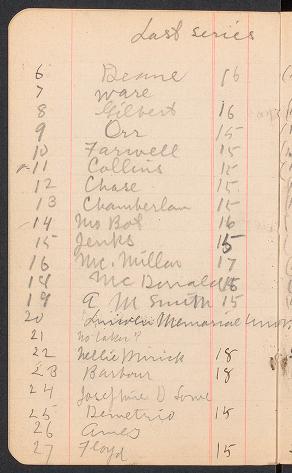 Last series
6 Deane 16
7 Ware
8 Gilbert 16
9 Orr 15
10 Farwell 15
11 Collins 15
12 Chase 15
13 Chamberlan 15
14 Mo Bot 16
15 Jenks 15
16 Mc Millan 17
18 Mc Donald 18
19 A M Smith 15
20 Lincoln Memorial Univ
21 no taken?
22 Nellie Mirick 18
23 Barbour 18
24 Josephine D Lowe
25 Demetrio 15
26 Ames
27 Floyd 15